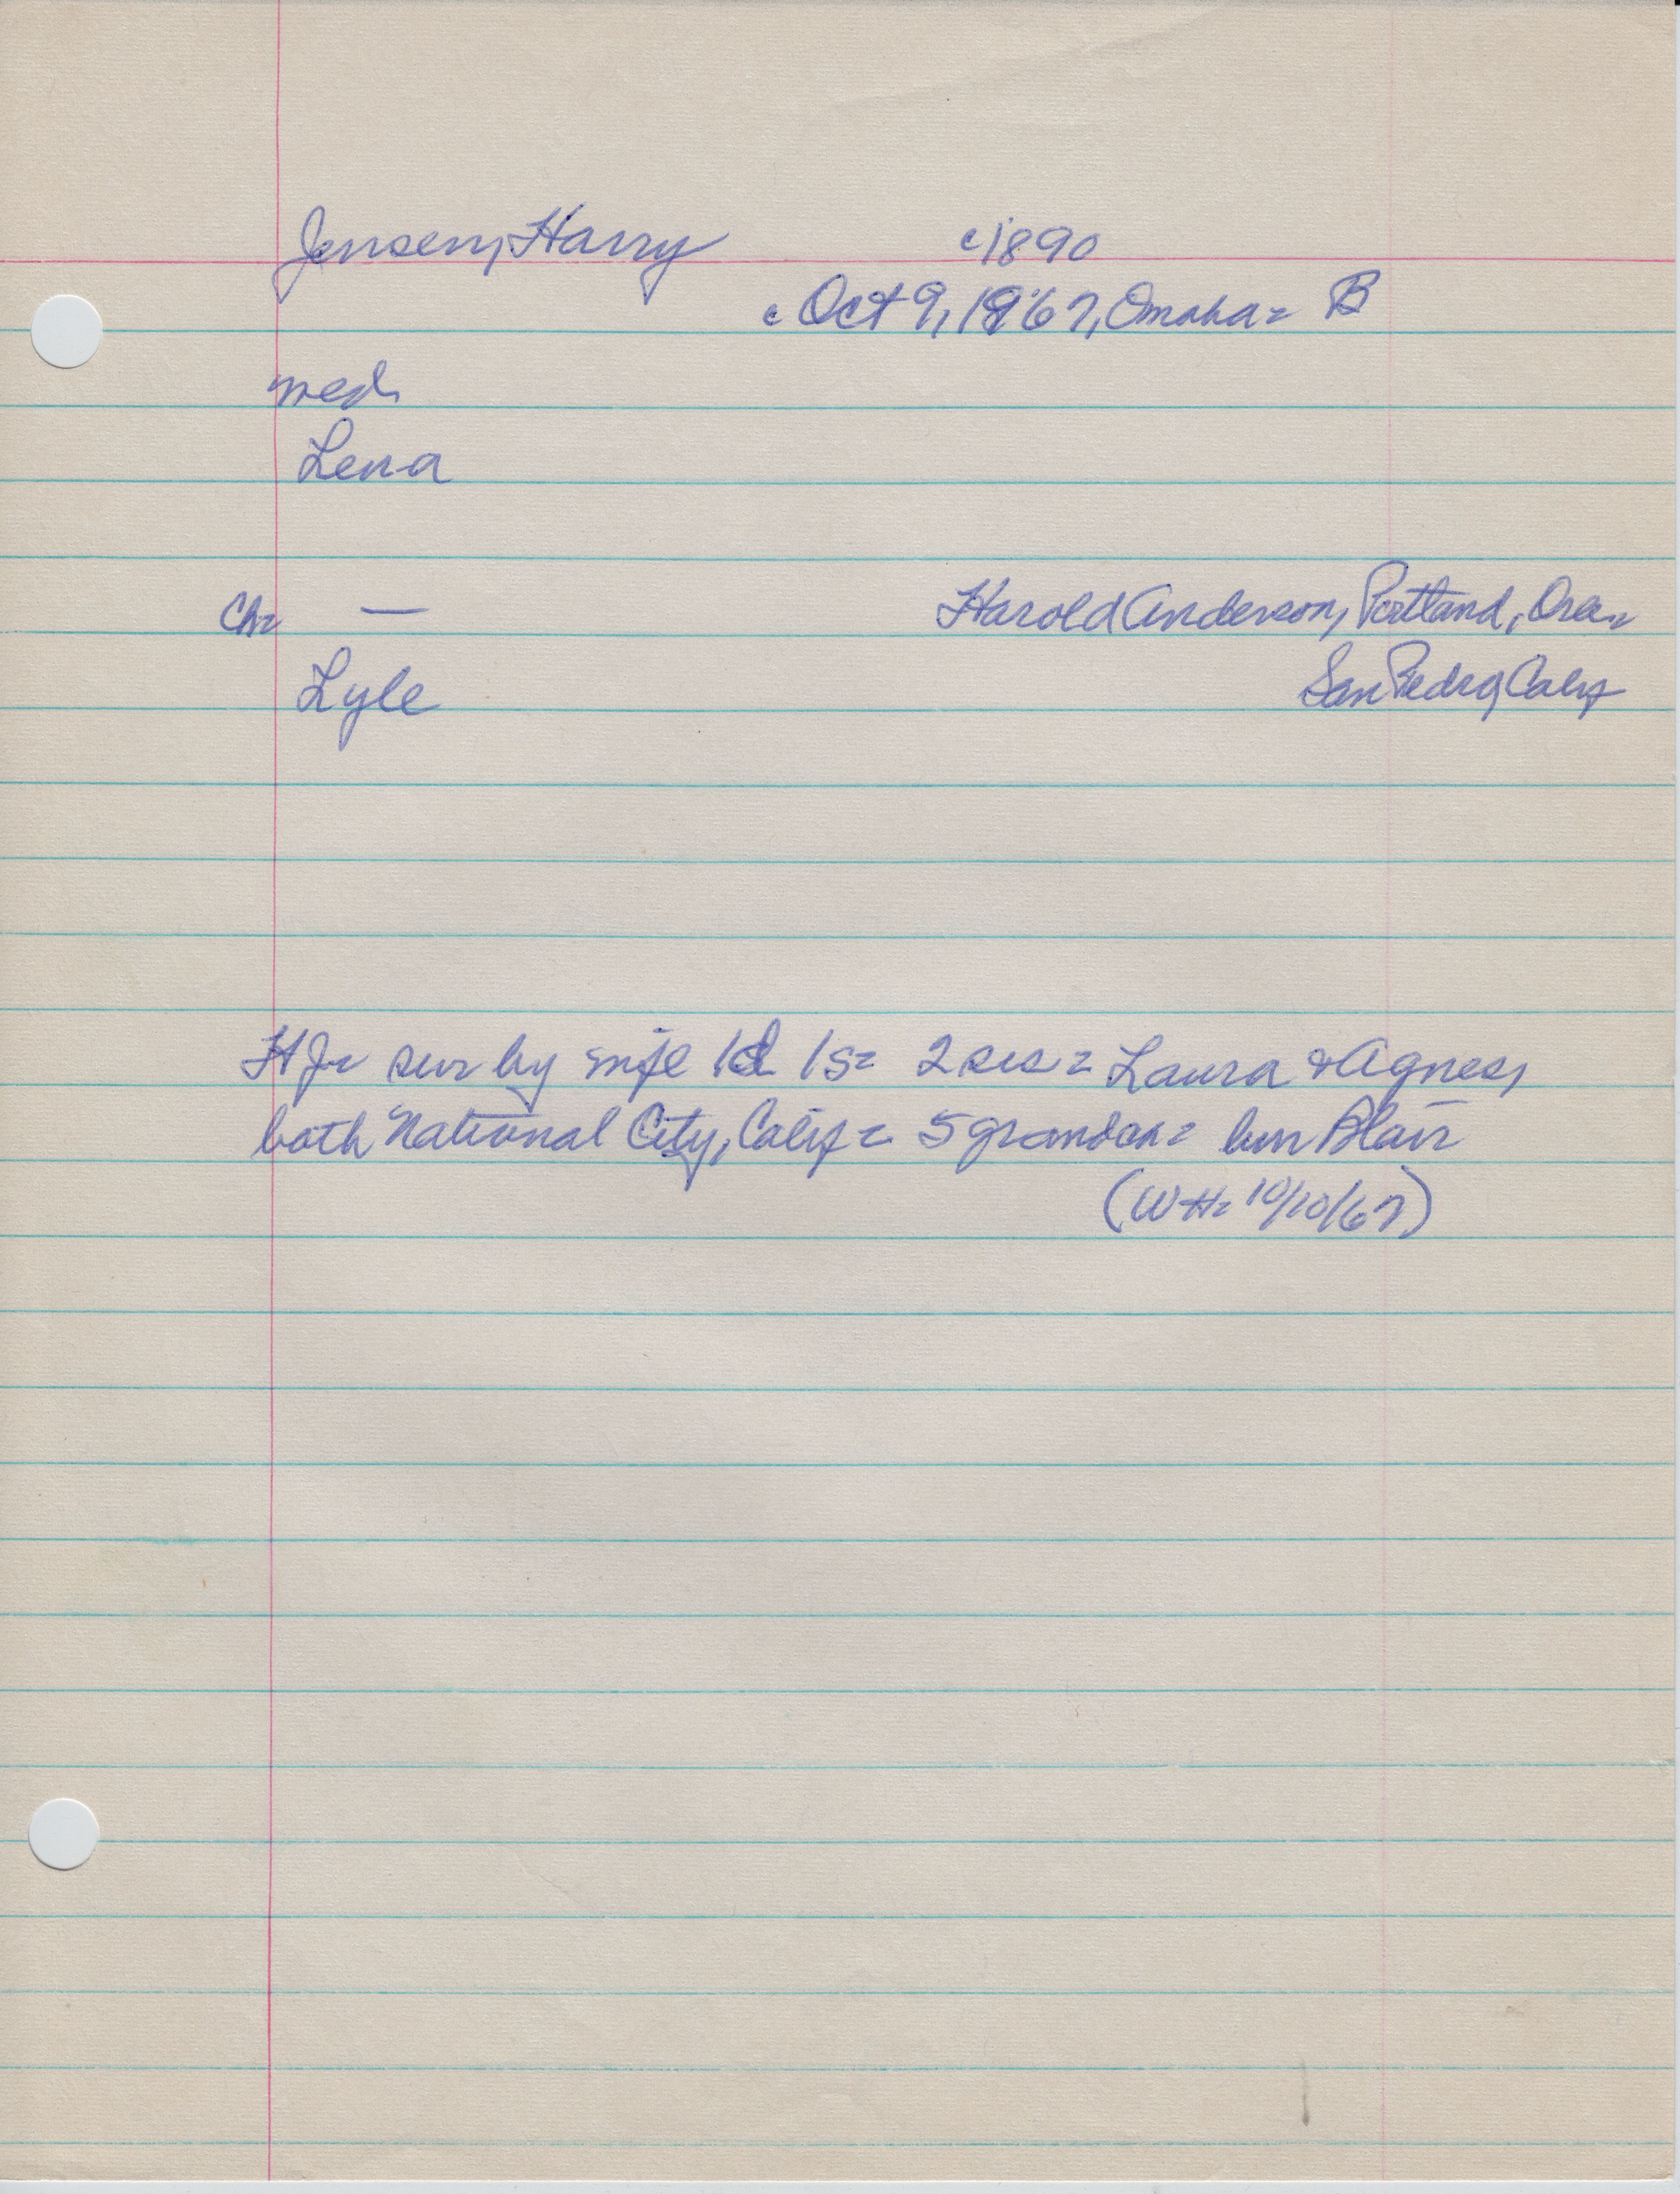 Jensen, Harry c1890
c Oct 9, 1967, Omaha= B
wed.
Lena
Ch= — Harold Anderson, Portland, Ore.=
Lyle San Pedro, Calif
HJ= sur by wife 1d 1s= 2 sis= Laura & Agnes,
both National City, Calif= 5 grandch= bur Blair
(WH= 10/10/67)